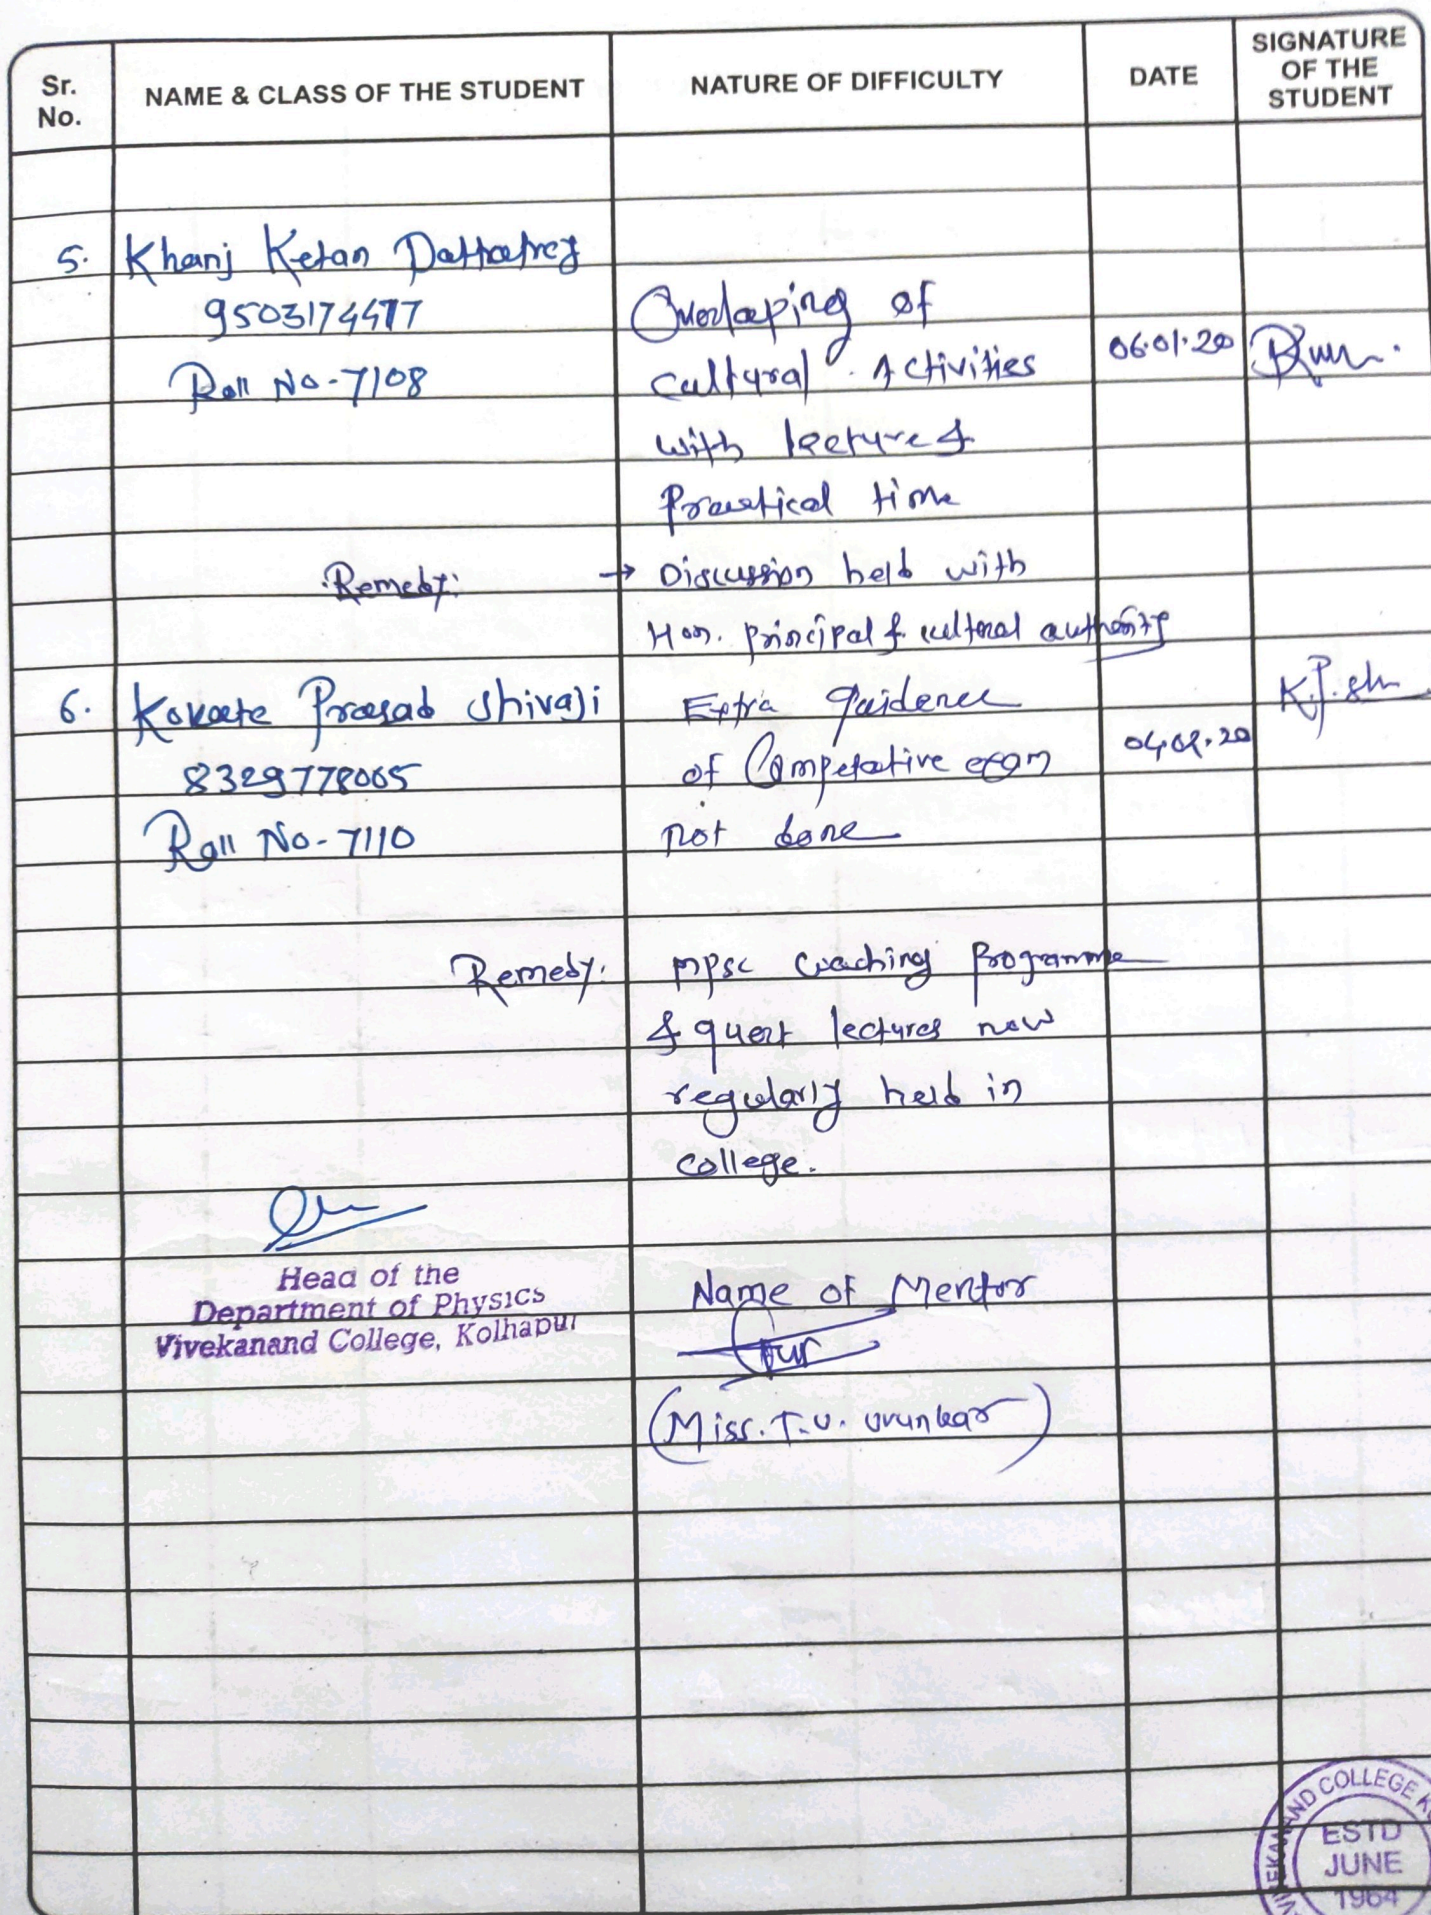 Sr. No.
NAME & CLASS OF THE STUDENT
NATURE OF DIFFICULTY
DATE
SIGNATURE OF THE STUDENT
5. Khanj Ketan Dattatrey
9503174477
Roll No-7108
Overlaping of
cultural Activities
with lecture &
Practical time
06.01.20
Remedy:
→ Discussion held with
Hon. principal & cultural authority
6. Kokate Prasad Shivaji
8329778065
Roll No-7110
Extra guidence
of Competative exam
not done
04.02.20
K.P.sh
Remedy: MPSC Coaching Programme
& guest lectures now
regularly held in
college.
Head of the
Department of Physics
Vivekanand College, Kolhapur
Name of Mentor
(Miss. T. U. Urunkar)
VIVEKANAND COLLEGE K
ESTD
JUNE
1964